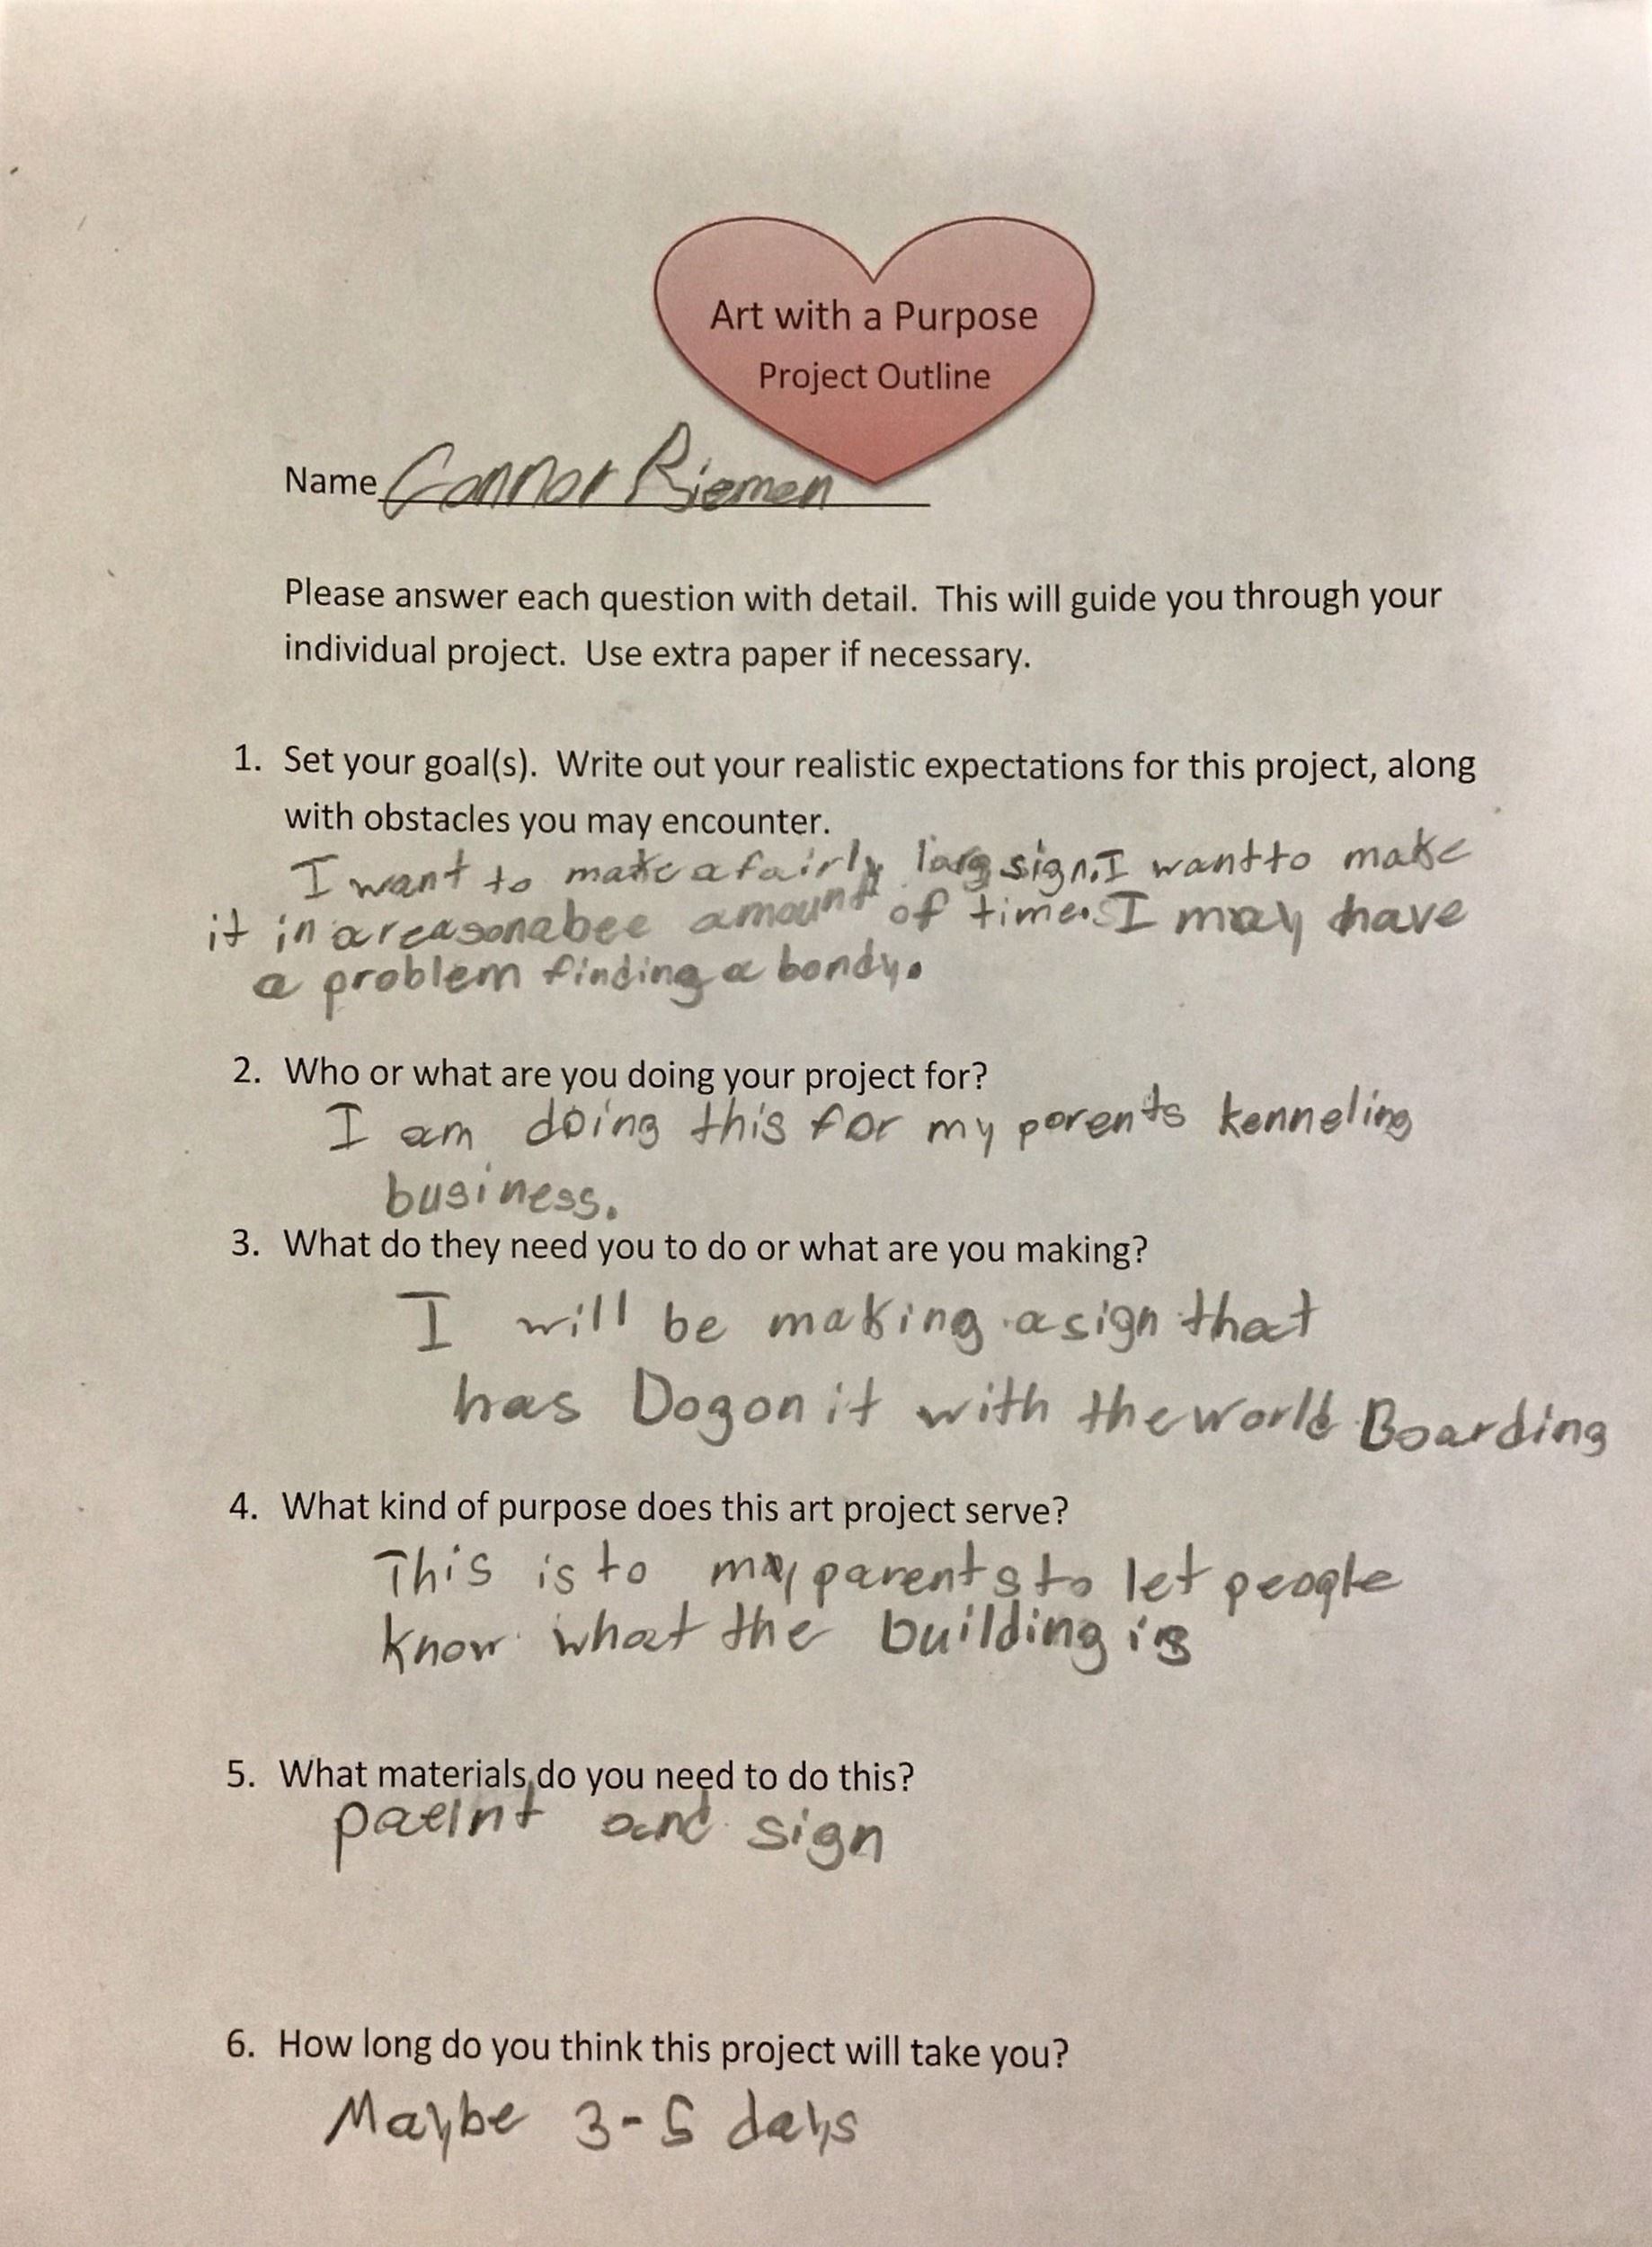 Art with a Purpose
Project Outline
Name Connor Riemen
Please answer each question with detail. This will guide you through your
individual project. Use extra paper if necessary.
1. Set your goal(s). Write out your realistic expectations for this project, along
with obstacles you may encounter.
I want to make a fairly larg sign. I want to make
it in a reasonabee amount of time. I may have
a problem finding a bondy.
2. Who or what are you doing your project for?
I am doing this for my parents kenneling
business.
3. What do they need you to do or what are you making?
I will be making a sign that
has Dog on it with the world Boarding
4. What kind of purpose does this art project serve?
This is to my parents to let people
know what the building is
5. What materials do you need to do this?
paeint and sign
6. How long do you think this project will take you?
Maybe 3-5 days